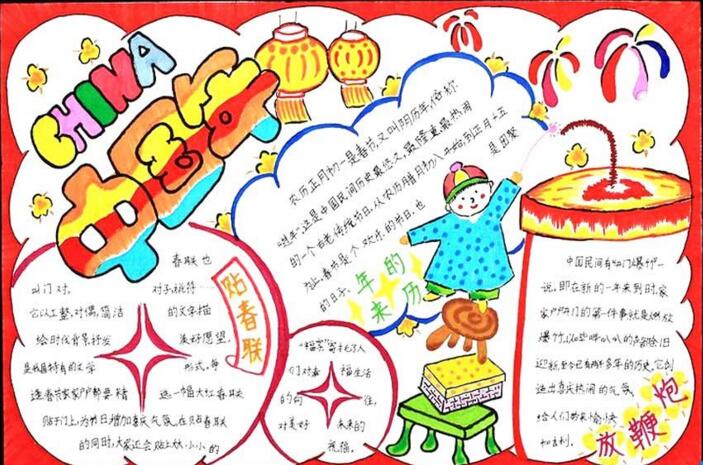 CHINA
中国年
农历正月初一是春节,又叫阴历年,俗称
"过年",这是中国民间历史最悠久,最隆重最热闹
的一个古老传统节日。从农历腊月初八开始,到正月十五
为止,春节是个欢乐的节日,也是团聚
的日子。
年的
来历
春联也
叫门对,对子,桃符
它以工整,对偶,简洁的文字描
绘时代背景,抒发美好愿望,
是我国特有的文学形式。每
逢春节家家户户都要精选一幅大红春联
贴于门上,为节日增加喜庆气氛。在贴春联
的同时,大家还会贴上大小小的
贴春联
"福"字寄托了人
们对幸福生活
的向往,
对美好未来的
祝福。
中国民间有"开门爆竹"一
说,即在新的一年来到时,家
家户户开门的第一件事就是燃放
爆竹,以哔哔叭叭的声部除旧
迎新,至今已有两千多年的历史,它创
造出喜庆热闹的气氛,
给人们带来愉快
和吉利。
放鞭炮